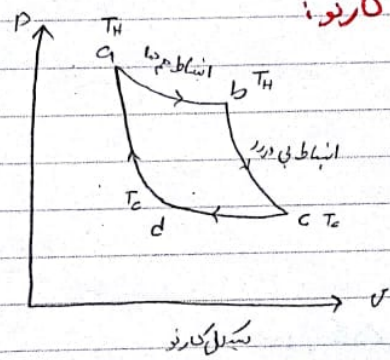 کارنو:
P
T_H
a
انبساط هم دما
b T_H
انبساط بی دررو
T_c
d
c T_c
v
سیکل کارنو